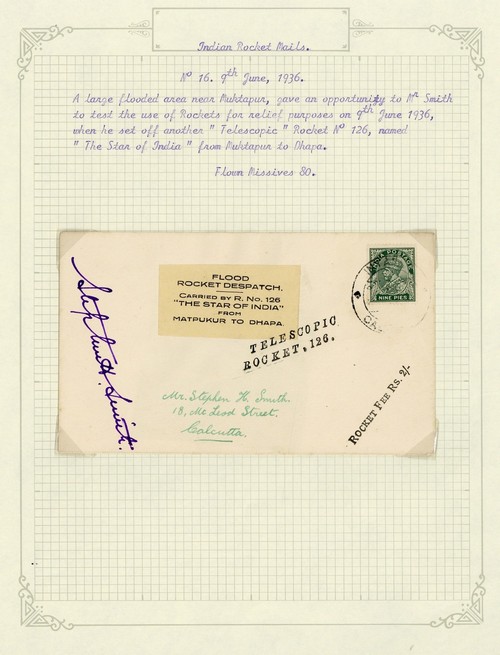 Indian Rocket Mails.
No 16. 9th June, 1936.
A large flooded area near Muktapur, gave an opportunity to Mr Smith
to test the use of Rockets for relief purposes on 9th June 1936,
when he set off another " Telescopic " Rocket No 126, named
" The Star of India " from Muktapur to Dhapa.
Flown Missives 80.
FLOOD
ROCKET DESPATCH.
CARRIED BY R. No. 126
"THE STAR OF INDIA"
FROM
MATPUKUR TO DHAPA.
INDIA POSTAGE
NINE PIES
TELESCOPIC
ROCKET, 126.
Stephen H. Smith.
Mr. Stephen H. Smith.
18, Mc Leod Street.
Calcutta.
ROCKET FEE RS. 2/-